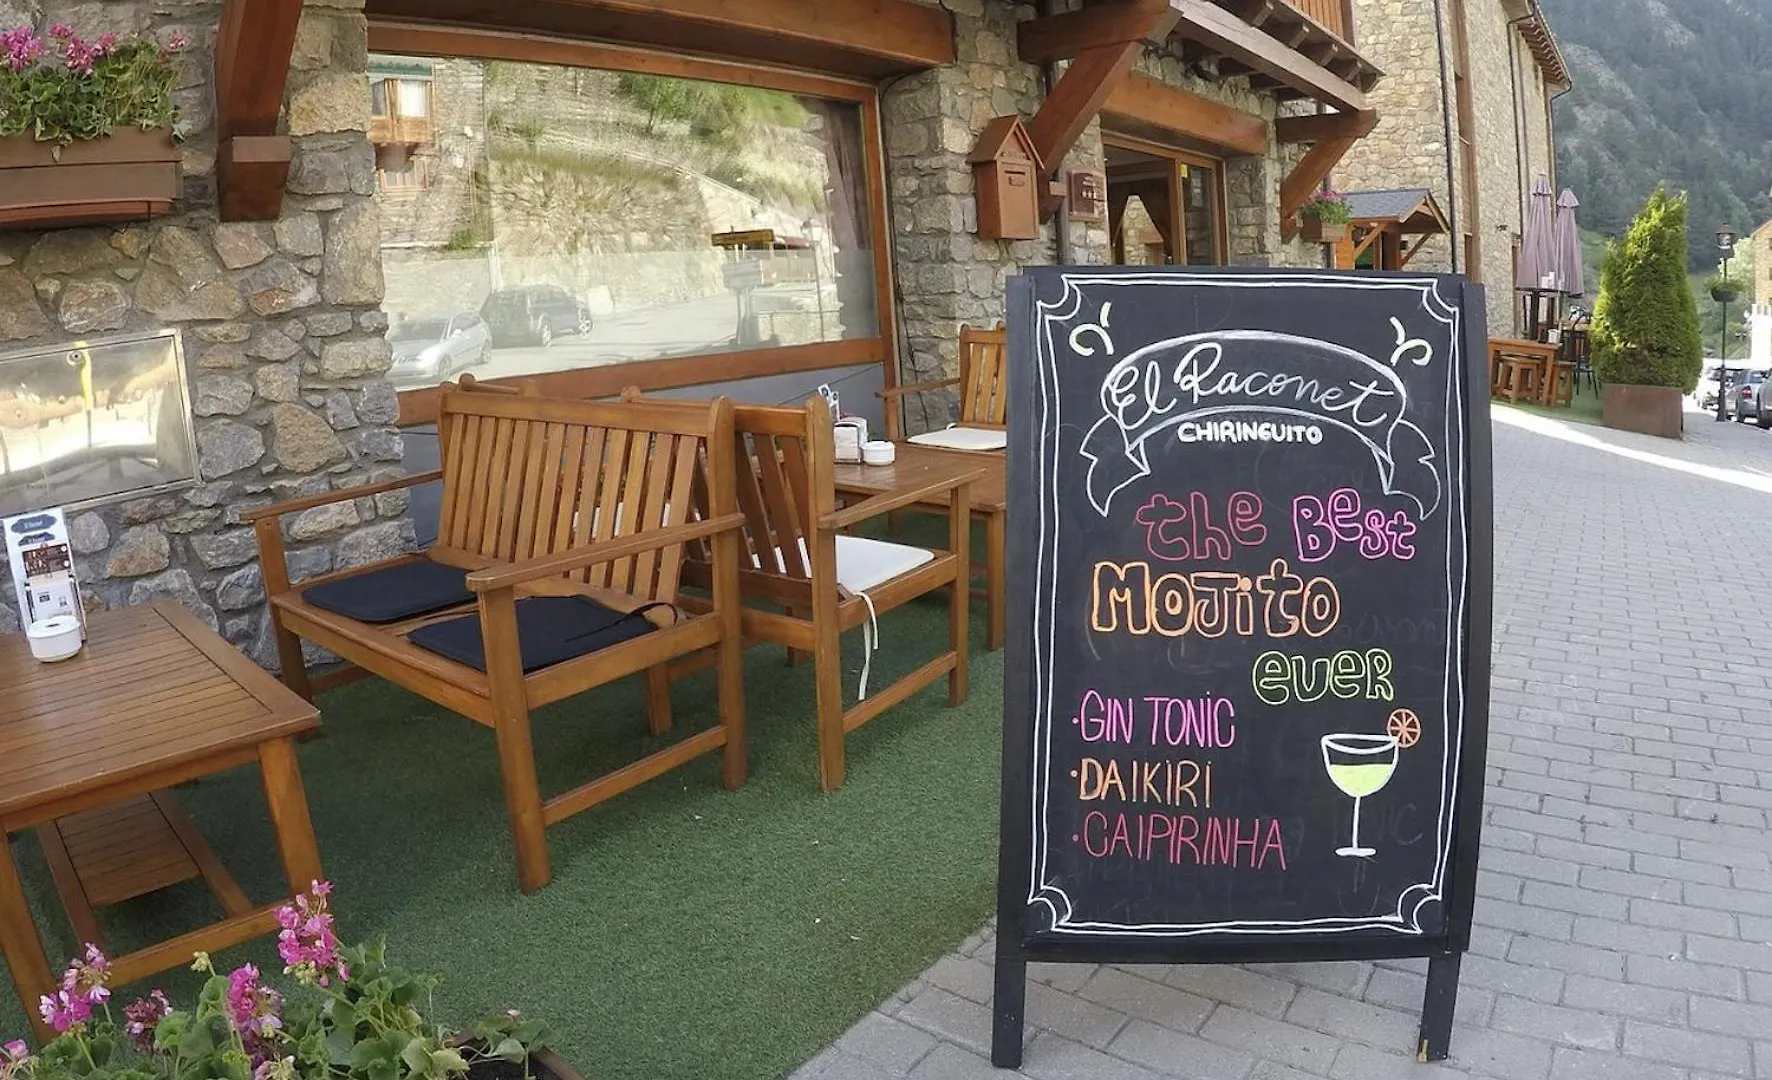 El Raconet
CHIRINGUITO
the Best
MOJito
EVER
·GIN TONIC
·DAIKIRI
·CAIPIRINHA